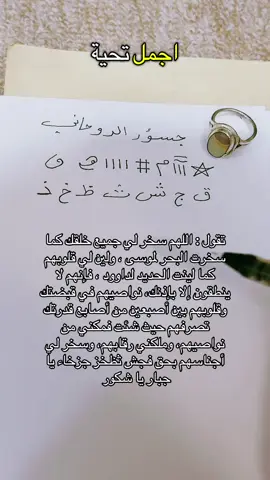 اجمل تحية
جسور الروحاني
ق ج ش ث ظ خ ذ
تقول : اللهم سخر لي جميع خلقك كما
سخرت البحر لموسى ، ولين لي قلوبهم
كما لينت الحديد لداوود ، فإنهم لا
ينطقون إلا بإذنك، نواصيهم في قبضتك
وقلوبهم بين أصبعين من أصابع قدرتك
تصرفهم حيث شئت فمكني من
نواصيهم، وملكني رقابهم، وسخر لي
أجناسهم بحق فجش ثظخز جزخاء يا
جبار يا شكور